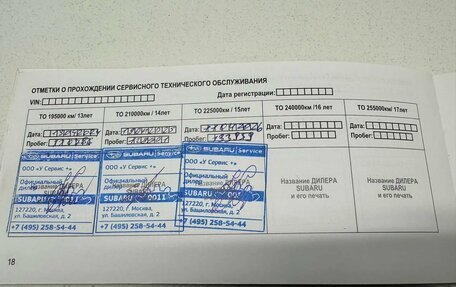 ОТМЕТКИ О ПРОХОЖДЕНИИ СЕРВИСНОГО ТЕХНИЧЕСКОГО ОБСЛУЖИВАНИЯ
VIN: Дата регистрации:
ТО 195000км/ 13лет ТО 210000км / 14лет ТО 225000км / 15лет ТО 240000км /16 лет ТО 255000км/ 17лет
Дата: Дата: Дата: Дата: Дата:
Пробег: Пробег: Пробег: Пробег: Пробег:
SUBARU Service SUBARU Service SUBARU Service
ООО «У Сервис +» ООО «У Сервис +» ООО «У Сервис +»
Официальный дилер Официальный дилер Официальный дилер
Название ДИЛЕРА SUBARU и его печать Название ДИЛЕРА SUBARU и его печать
SUBARU SUBARU SUBARU
127220, г. Москва, 127220, г. Москва, 127220, г. Москва,
ул. Башиловская, д. 2 ул. Башиловская, д. 2 ул. Башиловская, д. 2
+7 (495) 258-54-44 +7 (495) 258-54-44 +7 (495) 258-54-44
18